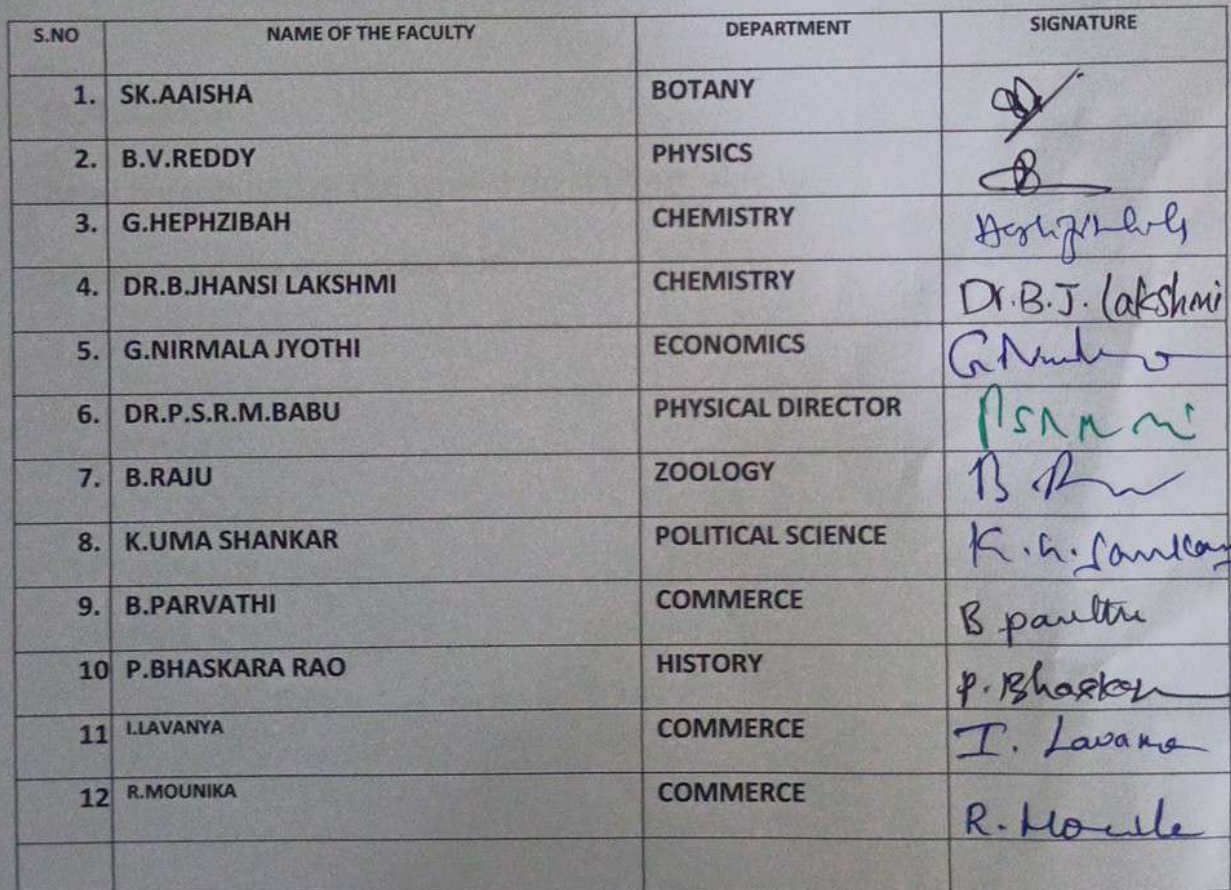 S.NO NAME OF THE FACULTY DEPARTMENT SIGNATURE
1. SK.AAISHA BOTANY
2. B.V.REDDY PHYSICS
3. G.HEPHZIBAH CHEMISTRY
4. DR.B.JHANSI LAKSHMI CHEMISTRY Dr.B.J. Lakshmi
5. G.NIRMALA JYOTHI ECONOMICS
6. DR.P.S.R.M.BABU PHYSICAL DIRECTOR
7. B.RAJU ZOOLOGY
8. K.UMA SHANKAR POLITICAL SCIENCE
9. B.PARVATHI COMMERCE
10 P.BHASKARA RAO HISTORY
11 I.LAVANYA COMMERCE
12 R.MOUNIKA COMMERCE